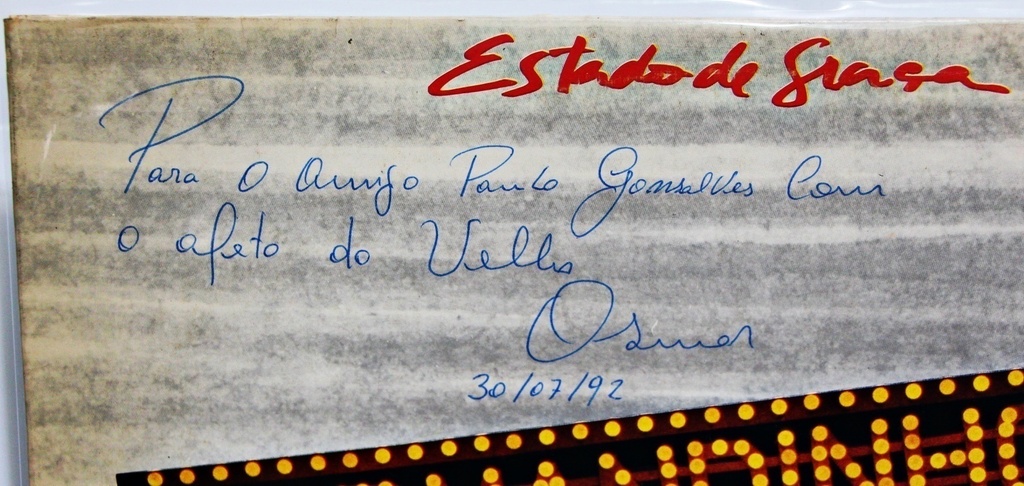 Estado de Graça
Para o amigo Paulo Gonsalves com
o afeto do Velho
Osmar
30/07/92